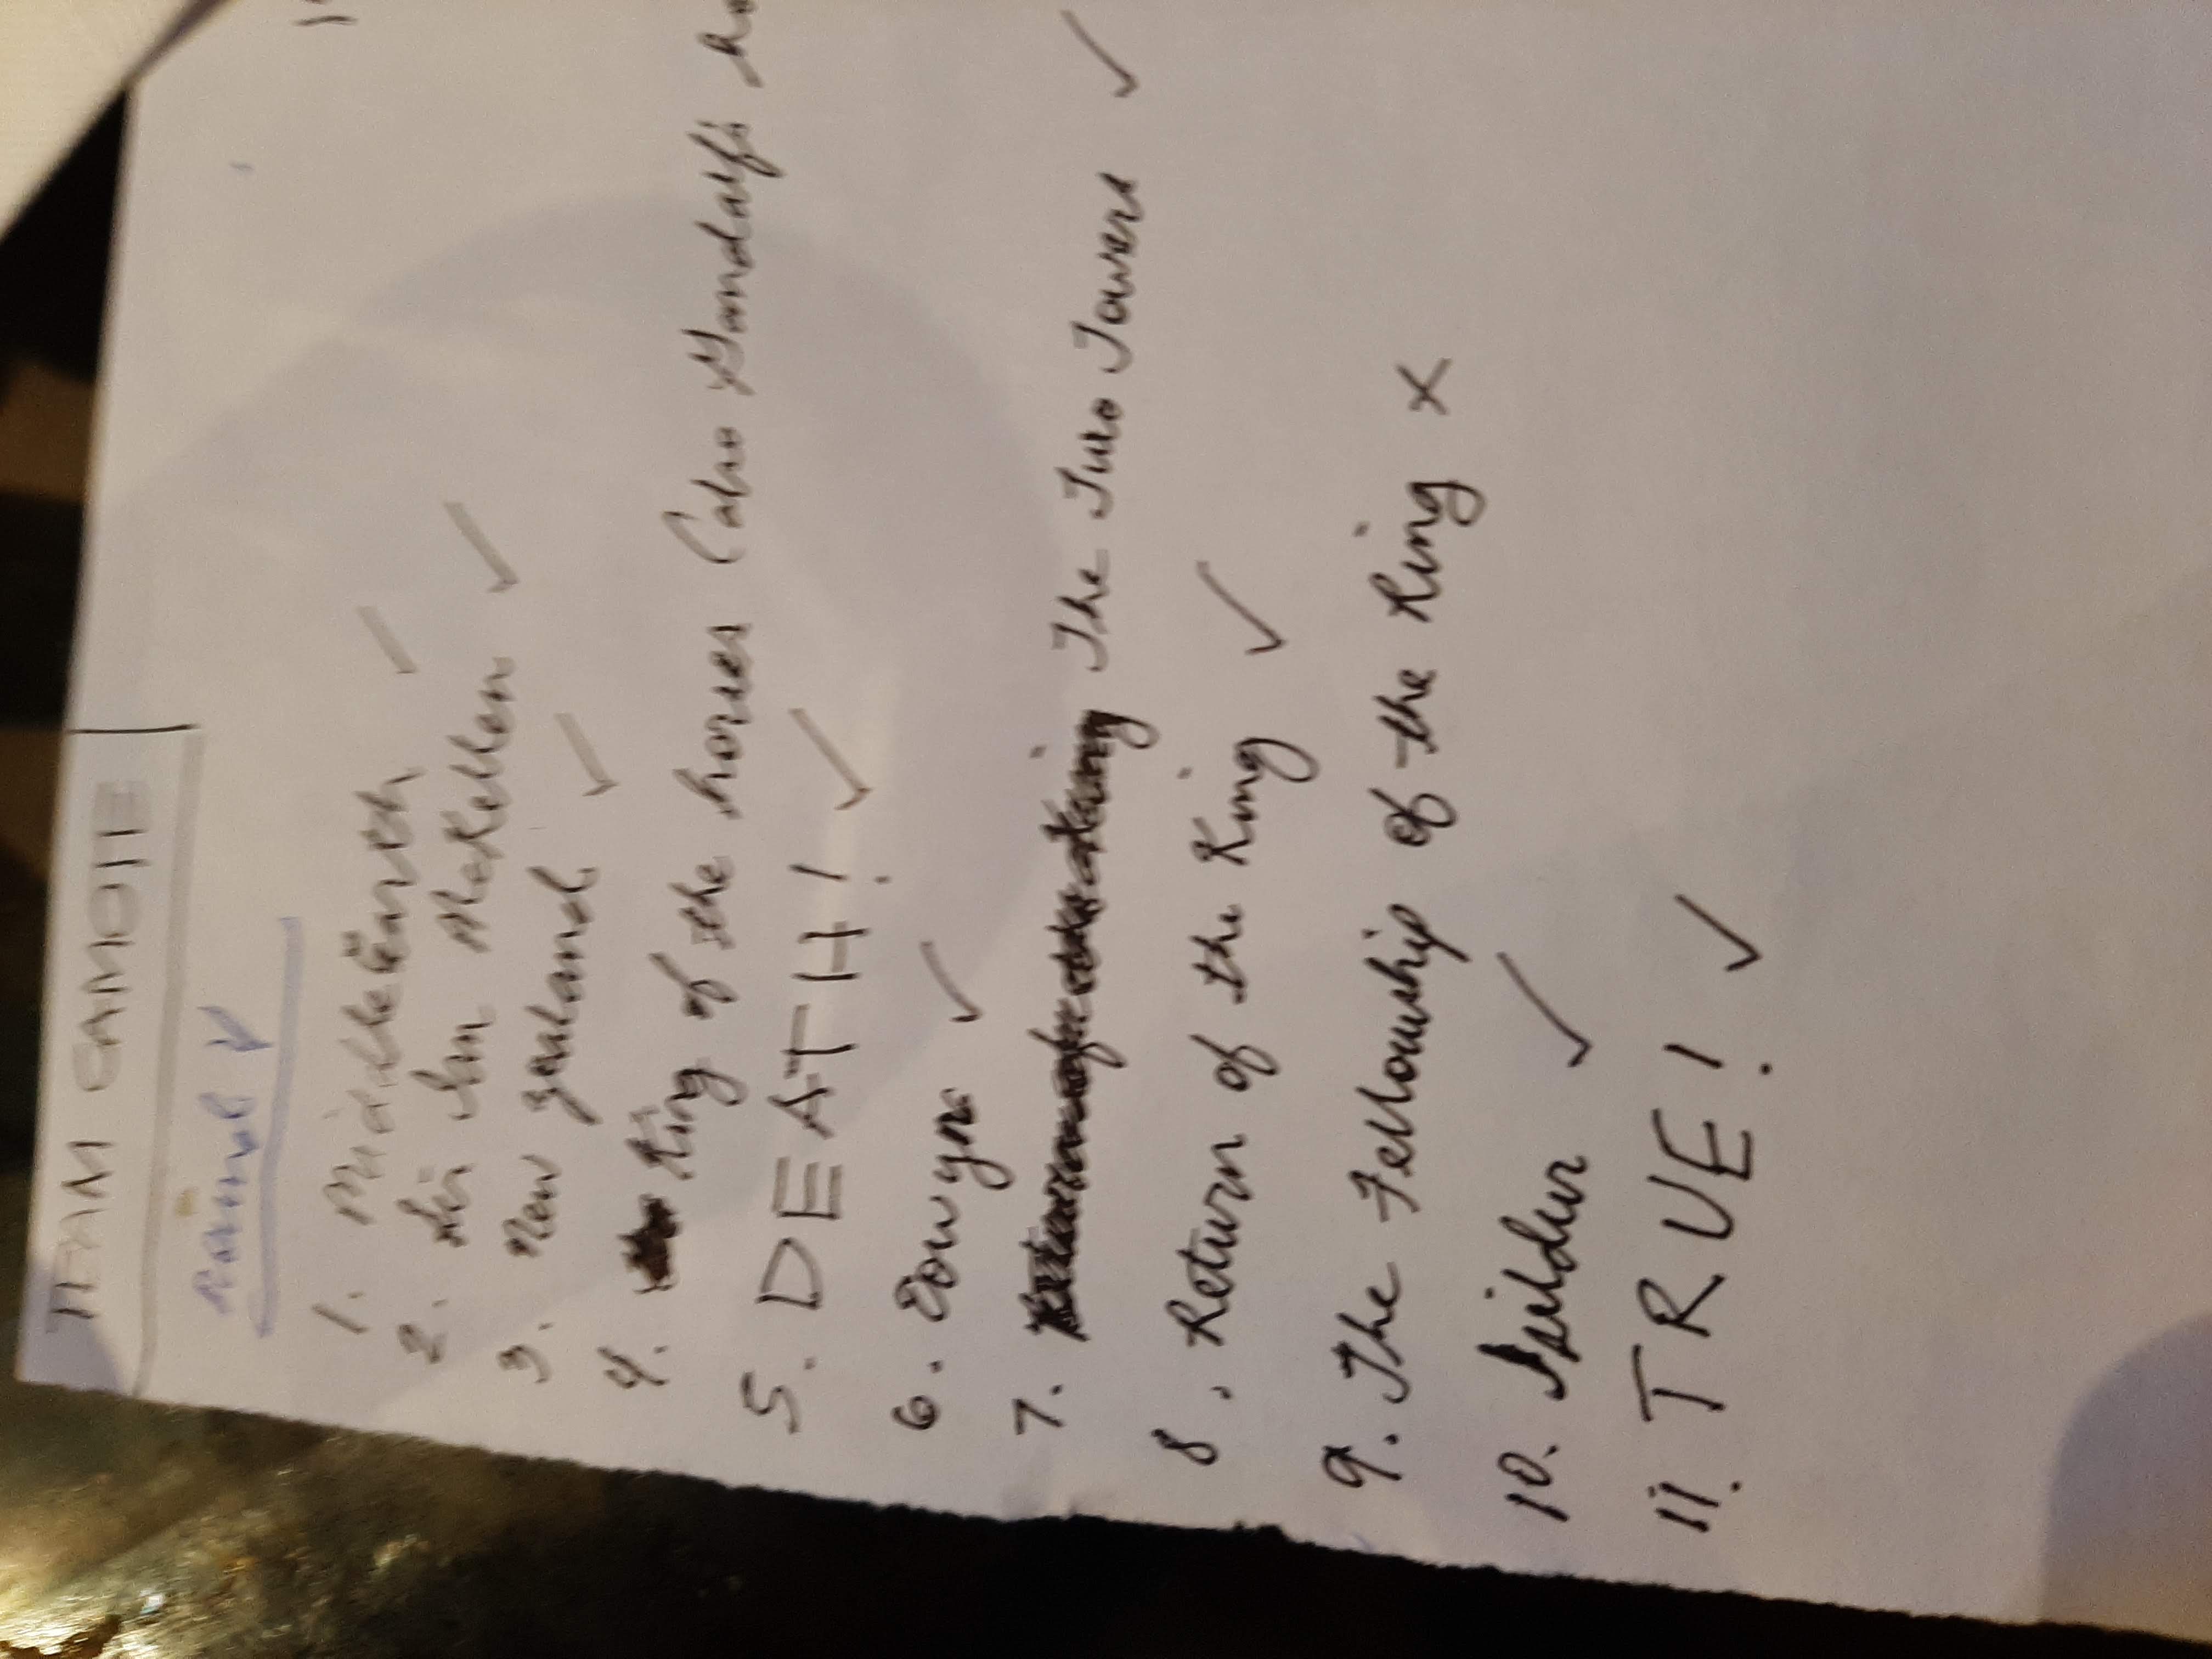 TEAM CAMOTE
Round V
1. Middle Earth ✓
2. Sir Ian McKellen ✓
3. New Zealand ✓
4. King of the horses (also Gandalf's
5. DEATH! ✓
6. Eowyn ✓
7. The Two Towers ✓
8. Return of the King ✓
9. The Fellowship of the Ring x
10. Isildur ✓
11. TRUE! ✓